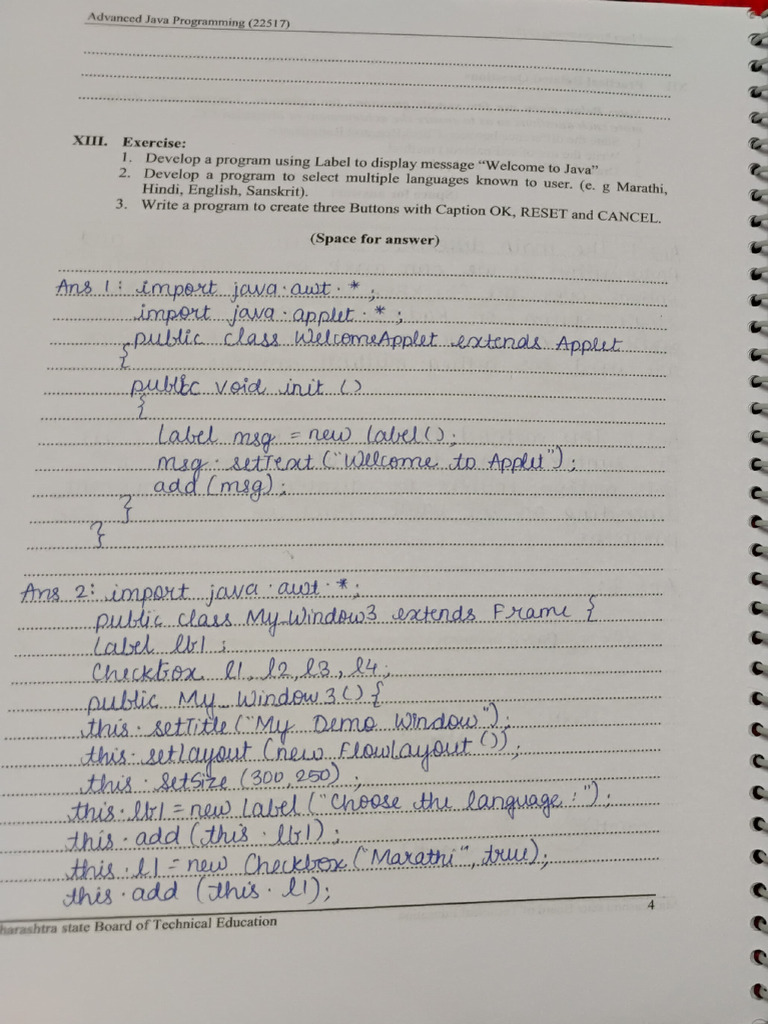 Advanced Java Programming (22517)
XIII. Exercise:
1. Develop a program using Label to display message “Welcome to Java”
2. Develop a program to select multiple languages known to user. (e. g Marathi,
Hindi, English, Sanskrit).
3. Write a program to create three Buttons with Caption OK, RESET and CANCEL.
(Space for answer)
Ans 1: import java.awt.*;
import java.applet.*;
public class WelcomeApplet extends Applet
{
public void init ()
{
Label msg = new label();
msg.setText ("Welcome to Applet");
add (msg);
}
}
Ans 2: import java.awt.*;
public class My_Window3 extends Frame {
Label lbl;
Checkbox l1, l2, l3, l4;
public My_Window3() {
this.setTitle ("My Demo Window");
this.setlayout (new FlowLayout ());
this.setSize (300,250);
this.lbl = new Label ("Choose the language :");
this.add (this.lbl);
this.l1 = new Checkbox ("Marathi", true);
this.add (this.l1);
4
harashtra state Board of Technical Education